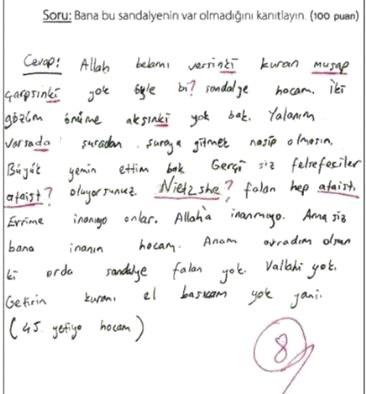 Soru: Bana bu sandalyenin var olmadığını kanıtlayın. (100 puan)
Cevap: Allah belamı versinki kuran muşap
çarpsınki yok öyle bi? sandalye hocam. İki
gözüm önüme aksınki yok bak. Yalanım
varsada şuradan şuraya gitmek nasip olmasın.
Büyük yemin ettim bak Gerçi siz felsefeciler
ataist? oluyorsunuz. Nietzshe? falan hep ataist.
Evrime inanıyo onlar. Allah'a inanmıyo. Ama siz
bana inanın hocam. Anam avradım olsun
ki orda sandalye falan yok. Vallahi yok.
Getirin kuranı el basıcam yok yani.
(45 yetiyo hocam)
8